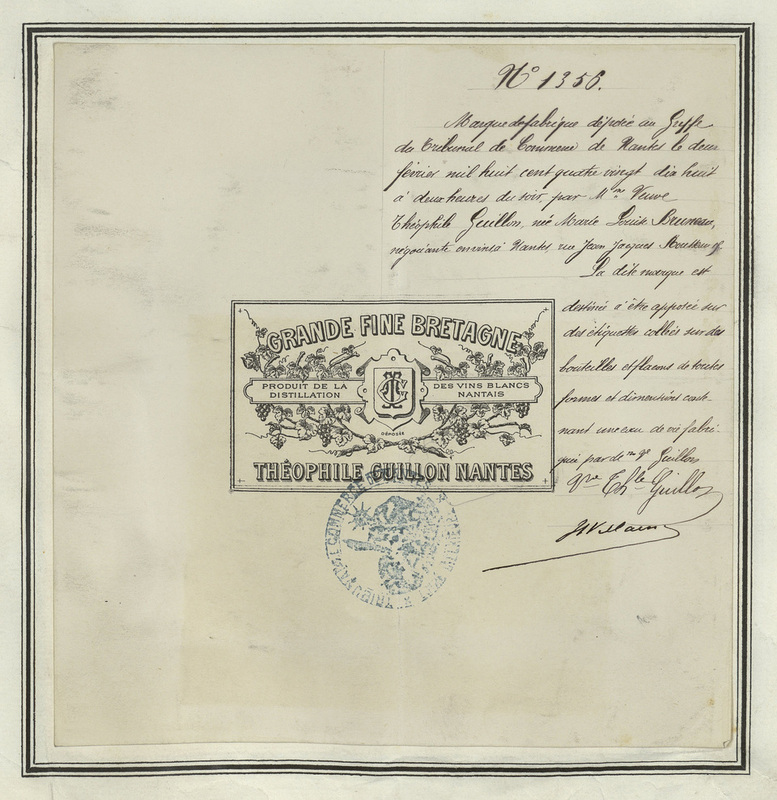 N° 1356.
Marque de fabrique déposée au Greffe
du Tribunal de Commerce de Nantes le deux
février mil huit cent quatre vingt dix huit
à deux heures du soir, par Mme Veuve
Théophile Guillon, née Marie Louise Bruneau,
négociante en vins à Nantes, rue Jean Jacques Rousseau
La dite marque est
destinée à être apposée sur
des étiquettes collées sur des
bouteilles et flacons de toutes
formes et dimensions conte-
nant une eau de vie fabri-
quée par de me Ve Guillon
Vve Thle Guillon
GRANDE FINE BRETAGNE
PRODUIT DE LA
DISTILLATION
DES VINS BLANCS
NANTAIS
DÉPOSÉE
THÉOPHILE GUILLON NANTES
TRIBUNAL DE COMMERCE DE NANTES